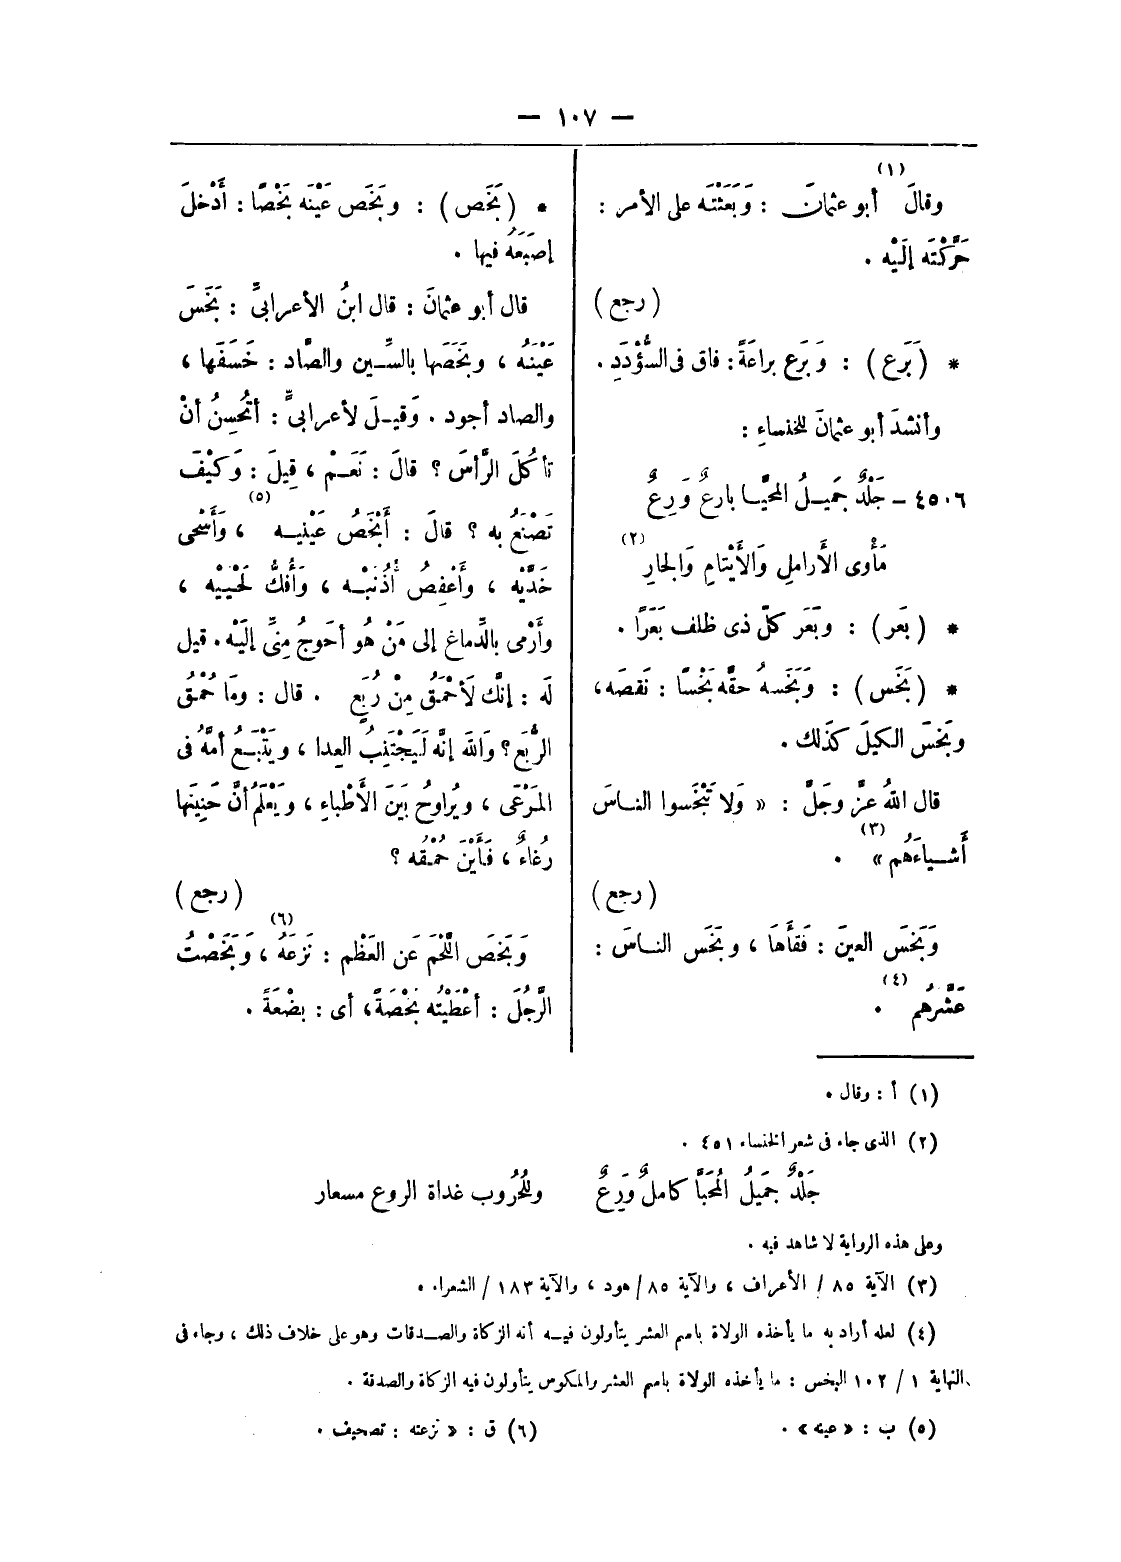 — ١٠٧ —
وقالَ (١) أبو عثمانَ : وَبَعَثْتَه على الأمر :
حَرَّكْتَه إلَيْه .
( رجع )
* ( بَرَع ) : وَبَرَع براعَةً : فاق فى السُّؤْدَدِ .
وأنشدَ أبو عثمانَ للخنساءِ :
٤٥٠٦ – جَلْدٌ جَميـلُ المحَيَّـا بارعٌ وَرِعٌ
مَأْوى الأراملِ وَالأَيْتامِ وَالجارِ (٢)
* ( بَعَر ) : وبَعَر كلّ ذى ظلف بَعَرًا .
* ( بَخَس ) : وَبَخَسهُ حقَّه بَخْسًا : نَقصَه ،
وبَخسَ الكيلَ كذَلك .
قال اللهُ عزَّ وجَلَّ : « وَلا تَبْخَسوا النـاسَ
أَشـياءَهُم » (٣) .
( رجع )
وَبَخَسَ العينَ : فَقأَهَا ، وبَخَس النـاسَ :
عَشَّرهُم (٤) .
* ( بَخَص ) : وبَخَص عَيْنَه بَخْصًا : أَدْخلَ
إصبَعَهُ فيها .
قال أبو عثمانَ : قال ابنُ الأعرابىِّ : بَخَسَ
عَيْنَهُ ، وبَخَصَها بالسِّـين والصَّاد : خَسَفَها ،
والصاد أجود . وَقيـلَ لأعرابىٍّ : أتُحسِنُ أنْ
تأكُلَ الرَّأسَ ؟ قالَ : نَعَـمْ ، قِيلَ : وَكيْفَ
تَصْنَعُ به ؟ قالَ : أَبْخَصُ عَيْنيـه (٥) ، وَأَسْحى
خَدَّيْه ، وَأَعْفِصُ أُذُنَيْـه ، وَأَفُكُّ لَحْيَيْه ،
وأَرْمى بالدِّماغ إلى مَنْ هُو أحَوجُ مِنِّى إلَيْه . قيل
لَه : إنَّك لَأَحْمَقُ مِنْ رُبَعٍ . قال : ومَا حُمْقُ
الرُّبَع ؟ وَاللهَ إنَّه لَيَجْتَنِبُ العِدا ، ويَتْبَـعُ أمَّهُ فى
المَرْعَى ، ويُراوِحُ بَينَ الأَطْباءِ ، ويَعْلَمُ أنَّ حَنِينَها
رُغاءٌ ، فَأَيْنَ حُمْقه ؟
( رجع )
وَبَخصَ اللَّحْمَ عَن العَظْم : نَزعَهُ (٦) ، وَبَخَصْتُ
الرَّجُلَ : أعْطَيْتُه بَخْصَةً ، أى : بضْعَةً .
(١) أ : وقال .
(٢) الذى جاء فى شعر الخنساء ٤٥١ .
جَلْدٌ جَمَيلُ المُحَيَّا كاملٌ وَرِعٌ وللحُرُوب غداة الروع مسعار
وعلى هذه الرواية لا شاهد فيه .
(٣) الآية ٨٥ / الأعراف ، والآية ٨٥ / هود ، والآية ١٨٣ / الشعراء .
(٤) لعله أراد به ما يأخذه الولاة باسم العشر يتأولون فيـه أنه الزكاة والصـدقات وهو على خلاف ذلك ، وجاء فى
النهاية ١ / ١٠٢ البخس : ما يأخذه الولاة باسم العشر والمكوس يتأولون فيه الزكاة والصدقة .
(٥) ب : « عينه » .
(٦) ق : « نزعته : تصحيف .